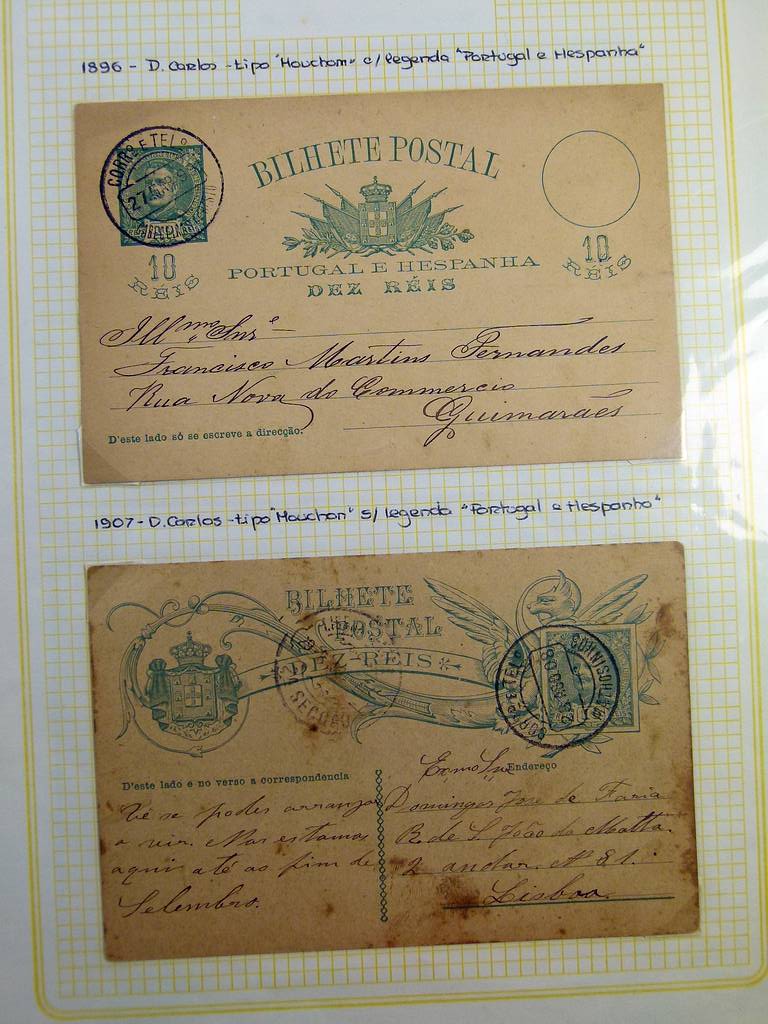 1896 - D. Carlos - tipo "Mouchon" c/ legenda "Portugal e Hespanha"
CORRº E TELº
27
BILHETE POSTAL
10 RÉIS
10 RÉIS
PORTUGAL E HESPANHA
DEZ RÉIS
Illmo Snr
Francisco Martins Fernandes
Rua Nova do Commercio
Guimarães
D'este lado só se escreve a direcção.
1907 - D. Carlos - tipo "Mouchon" s/ legenda "Portugal e Hespanha"
BILHETE
POSTAL
DEZ-RÉIS
CORRº E TELº
D'este lado e no verso a correspondencia
Endereço
Vê se podes arranjar
a vir. Nos estamos
aqui até ao fim de
Setembro.
Exmo Snr
Domingos José de Faria
R. de S. João da Matta.
2 andar. Nº 81.
Lisboa.